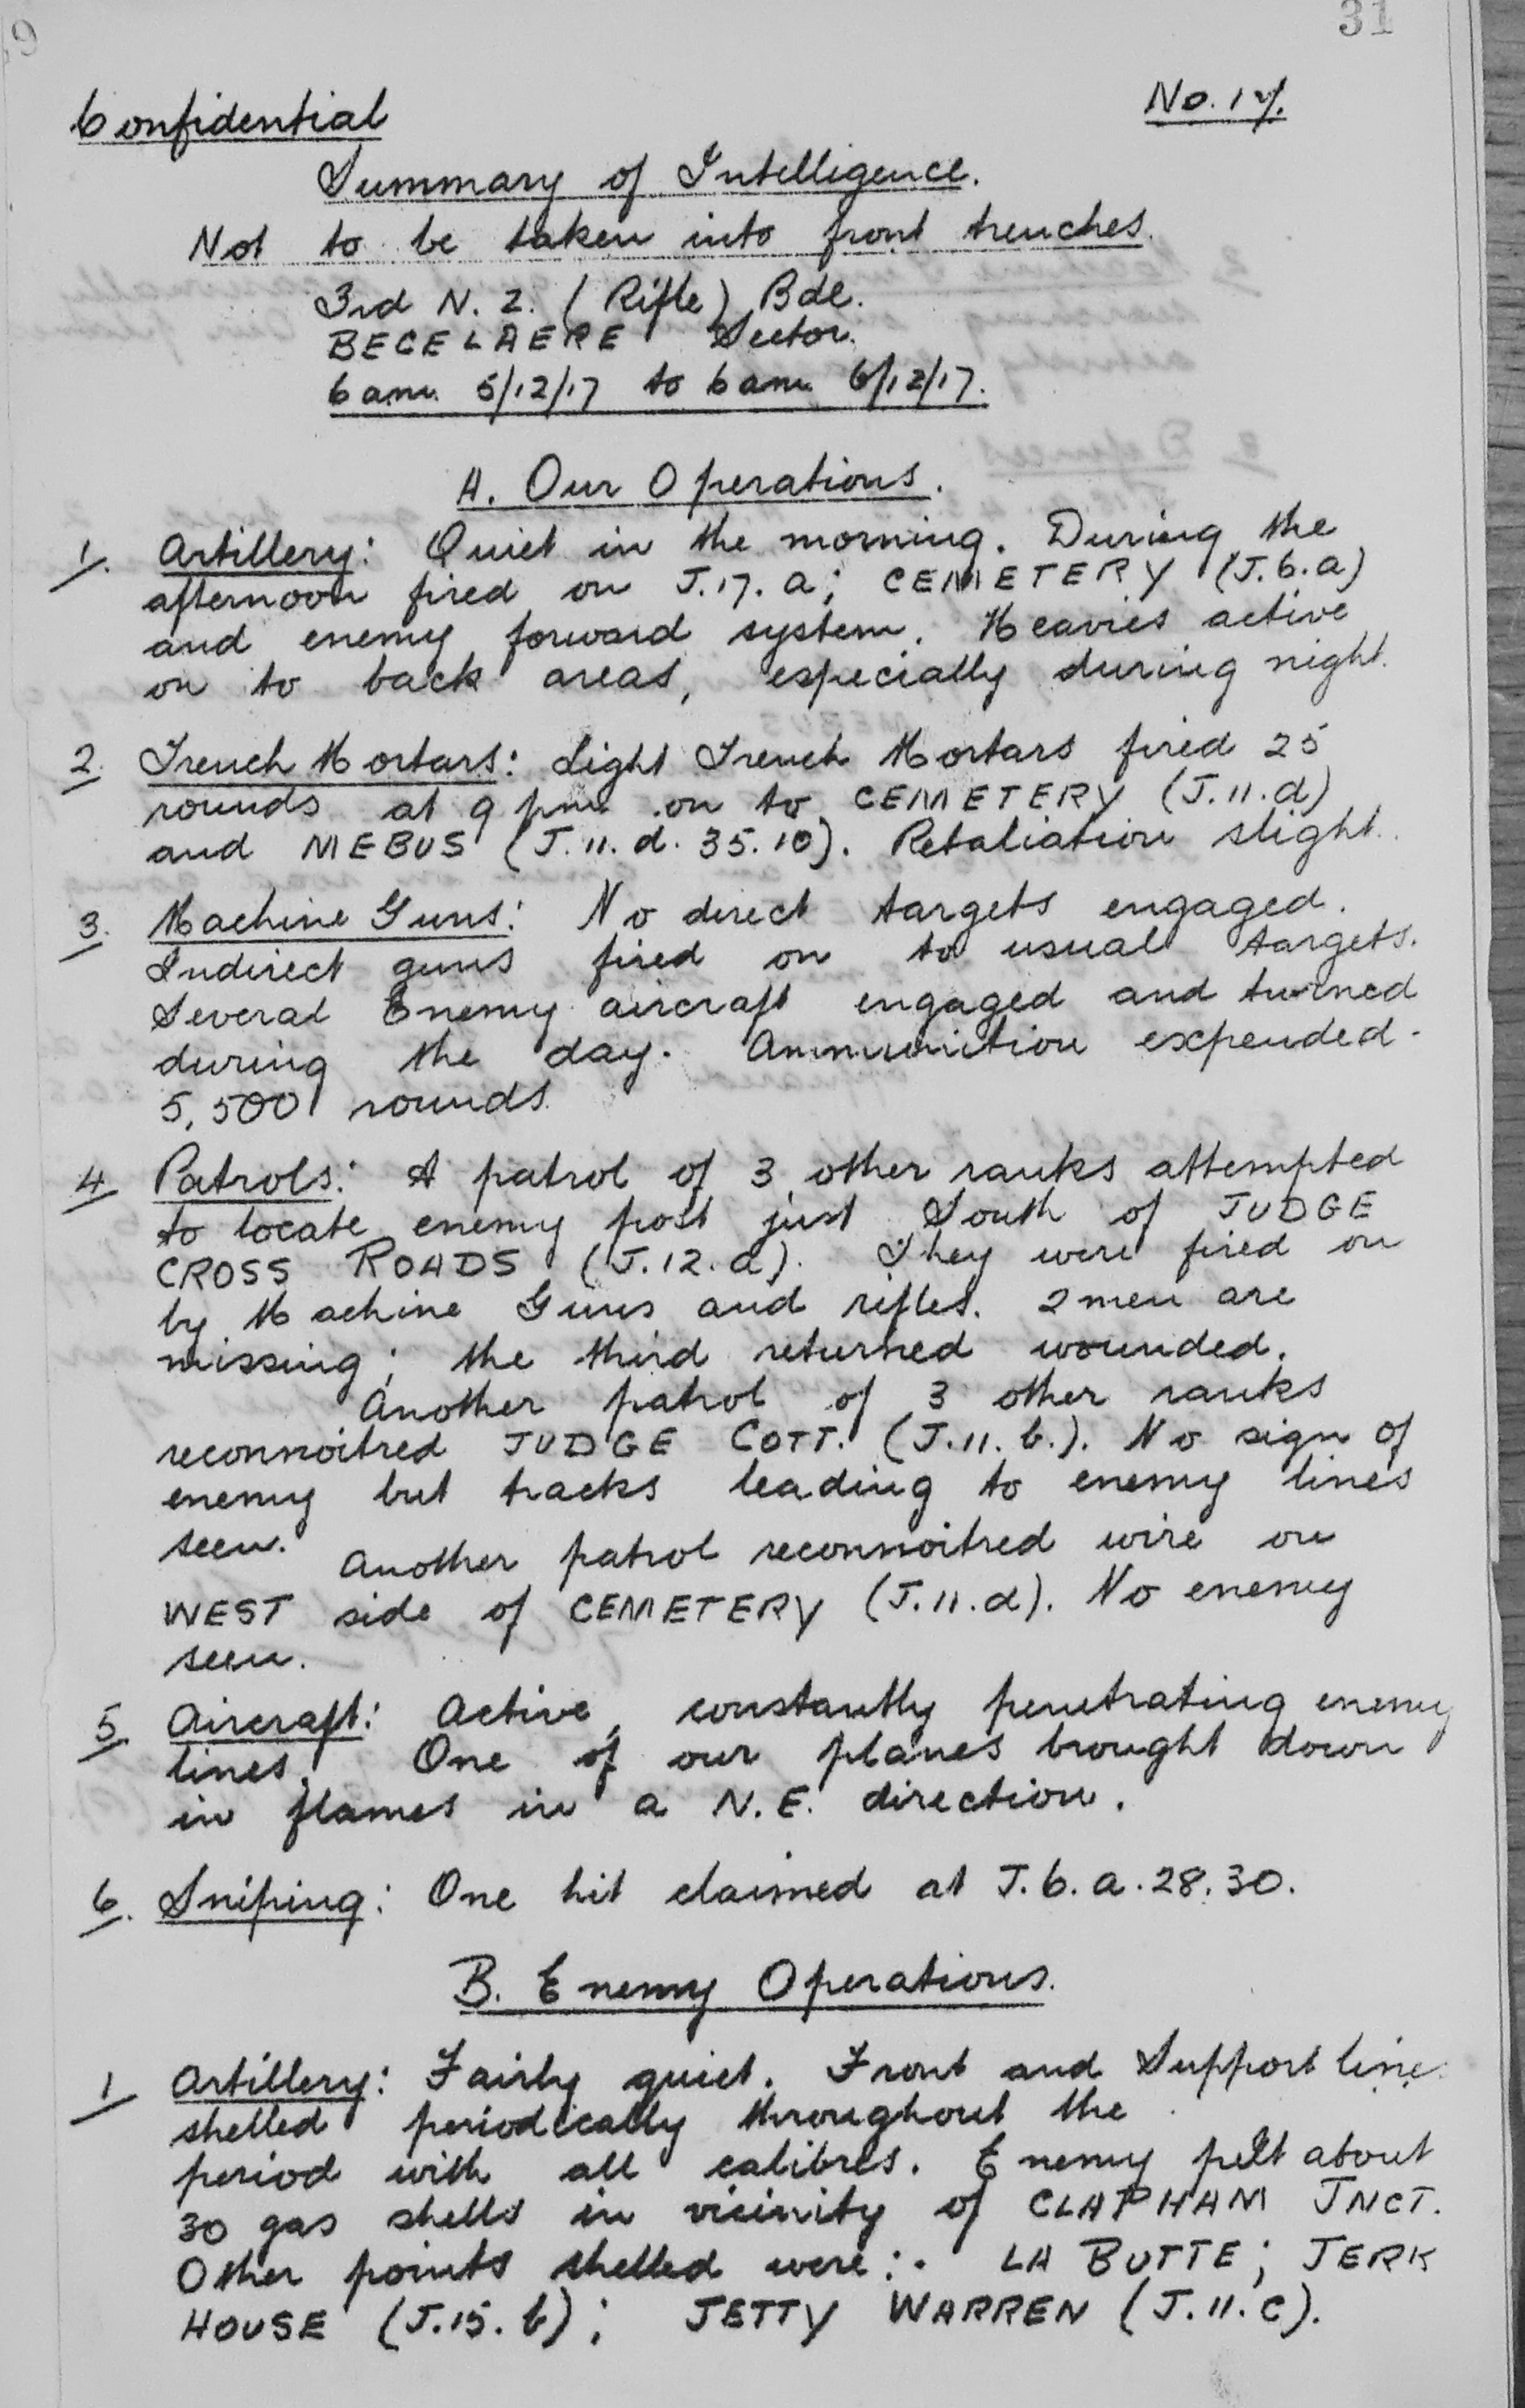 31
Confidential
No. 17.
Summary of Intelligence.
Not to be taken into front trenches.
3rd N. Z. (Rifle) Bde.
BECELAERE Sector.
6 am. 5/12/17 to 6 am. 6/12/17.
A. Our Operations.
1. Artillery: Quiet in the morning. During the
afternoon fired on J.17.a; CEMETERY (J.6.a)
and enemy forward system. Heavies active
on to back areas, especially during night.
2. Trench Mortars: Light Trench Mortars fired 25
rounds at 9 pm on to CEMETERY (J.11.d)
and MEBUS (J.11.d.35.10). Retaliation slight.
3. Machine Guns: No direct targets engaged.
Indirect guns fired on to usual targets.
Several Enemy aircraft engaged and turned
during the day. Ammunition expended -
5,500 rounds.
4 Patrols: A patrol of 3 other ranks attempted
to locate enemy post just South of JUDGE
CROSS ROADS (J.12.a). They were fired on
by Machine Guns and rifles. 2 men are
missing; the third returned wounded.
Another patrol of 3 other ranks
reconnoitred JUDGE COTT. (J.11.b.). No sign of
enemy but tracks leading to enemy lines
seen.
Another patrol reconnoitred wire on
WEST side of CEMETERY (J.11.d). No enemy
seen.
5. Aircraft: Active, constantly penetrating enemy
lines. One of our planes brought down
in flames in a N.E. direction.
6. Sniping: One hit claimed at J.6.a.28.30.
B. Enemy Operations.
1 Artillery: Fairly quiet. Front and Support line
shelled periodically throughout the
period with all calibres. Enemy put about
30 gas shells in vicinity of CLAPHAM JNCT.
Other points shelled were:- LA BUTTE; JERK
HOUSE (J.15.b); JETTY WARREN (J.11.c).